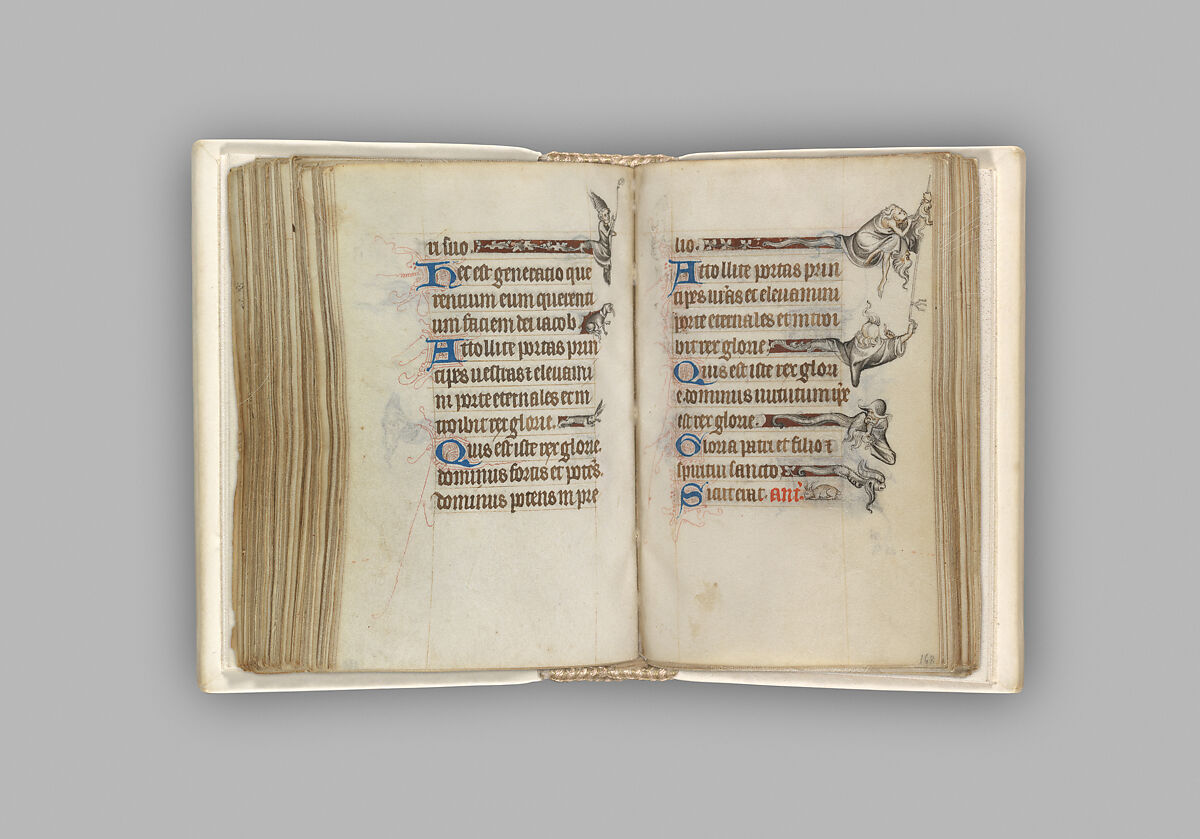 ri suo.
Hec est generatio que
rentium eum querenti
um faciem dei iacob
Attollite portas prin
cipes uestras ⁊ eleuami
ni porte eternales et in
troibit rex glorie.
Quis est iste rex glorie.
dominus fortis et potẽs.
dominus potens in pre
lio.
Attollite portas prin
cipes ur̃as et eleuamini
porte eternales et introi
bit rex glorie.
Quis est iste rex glori
e. dominus uirtutum ip̃e
est rex glorie.
Gloria patri et filio ⁊
spiritui sancto
Sicut erat. Ant̃.
168